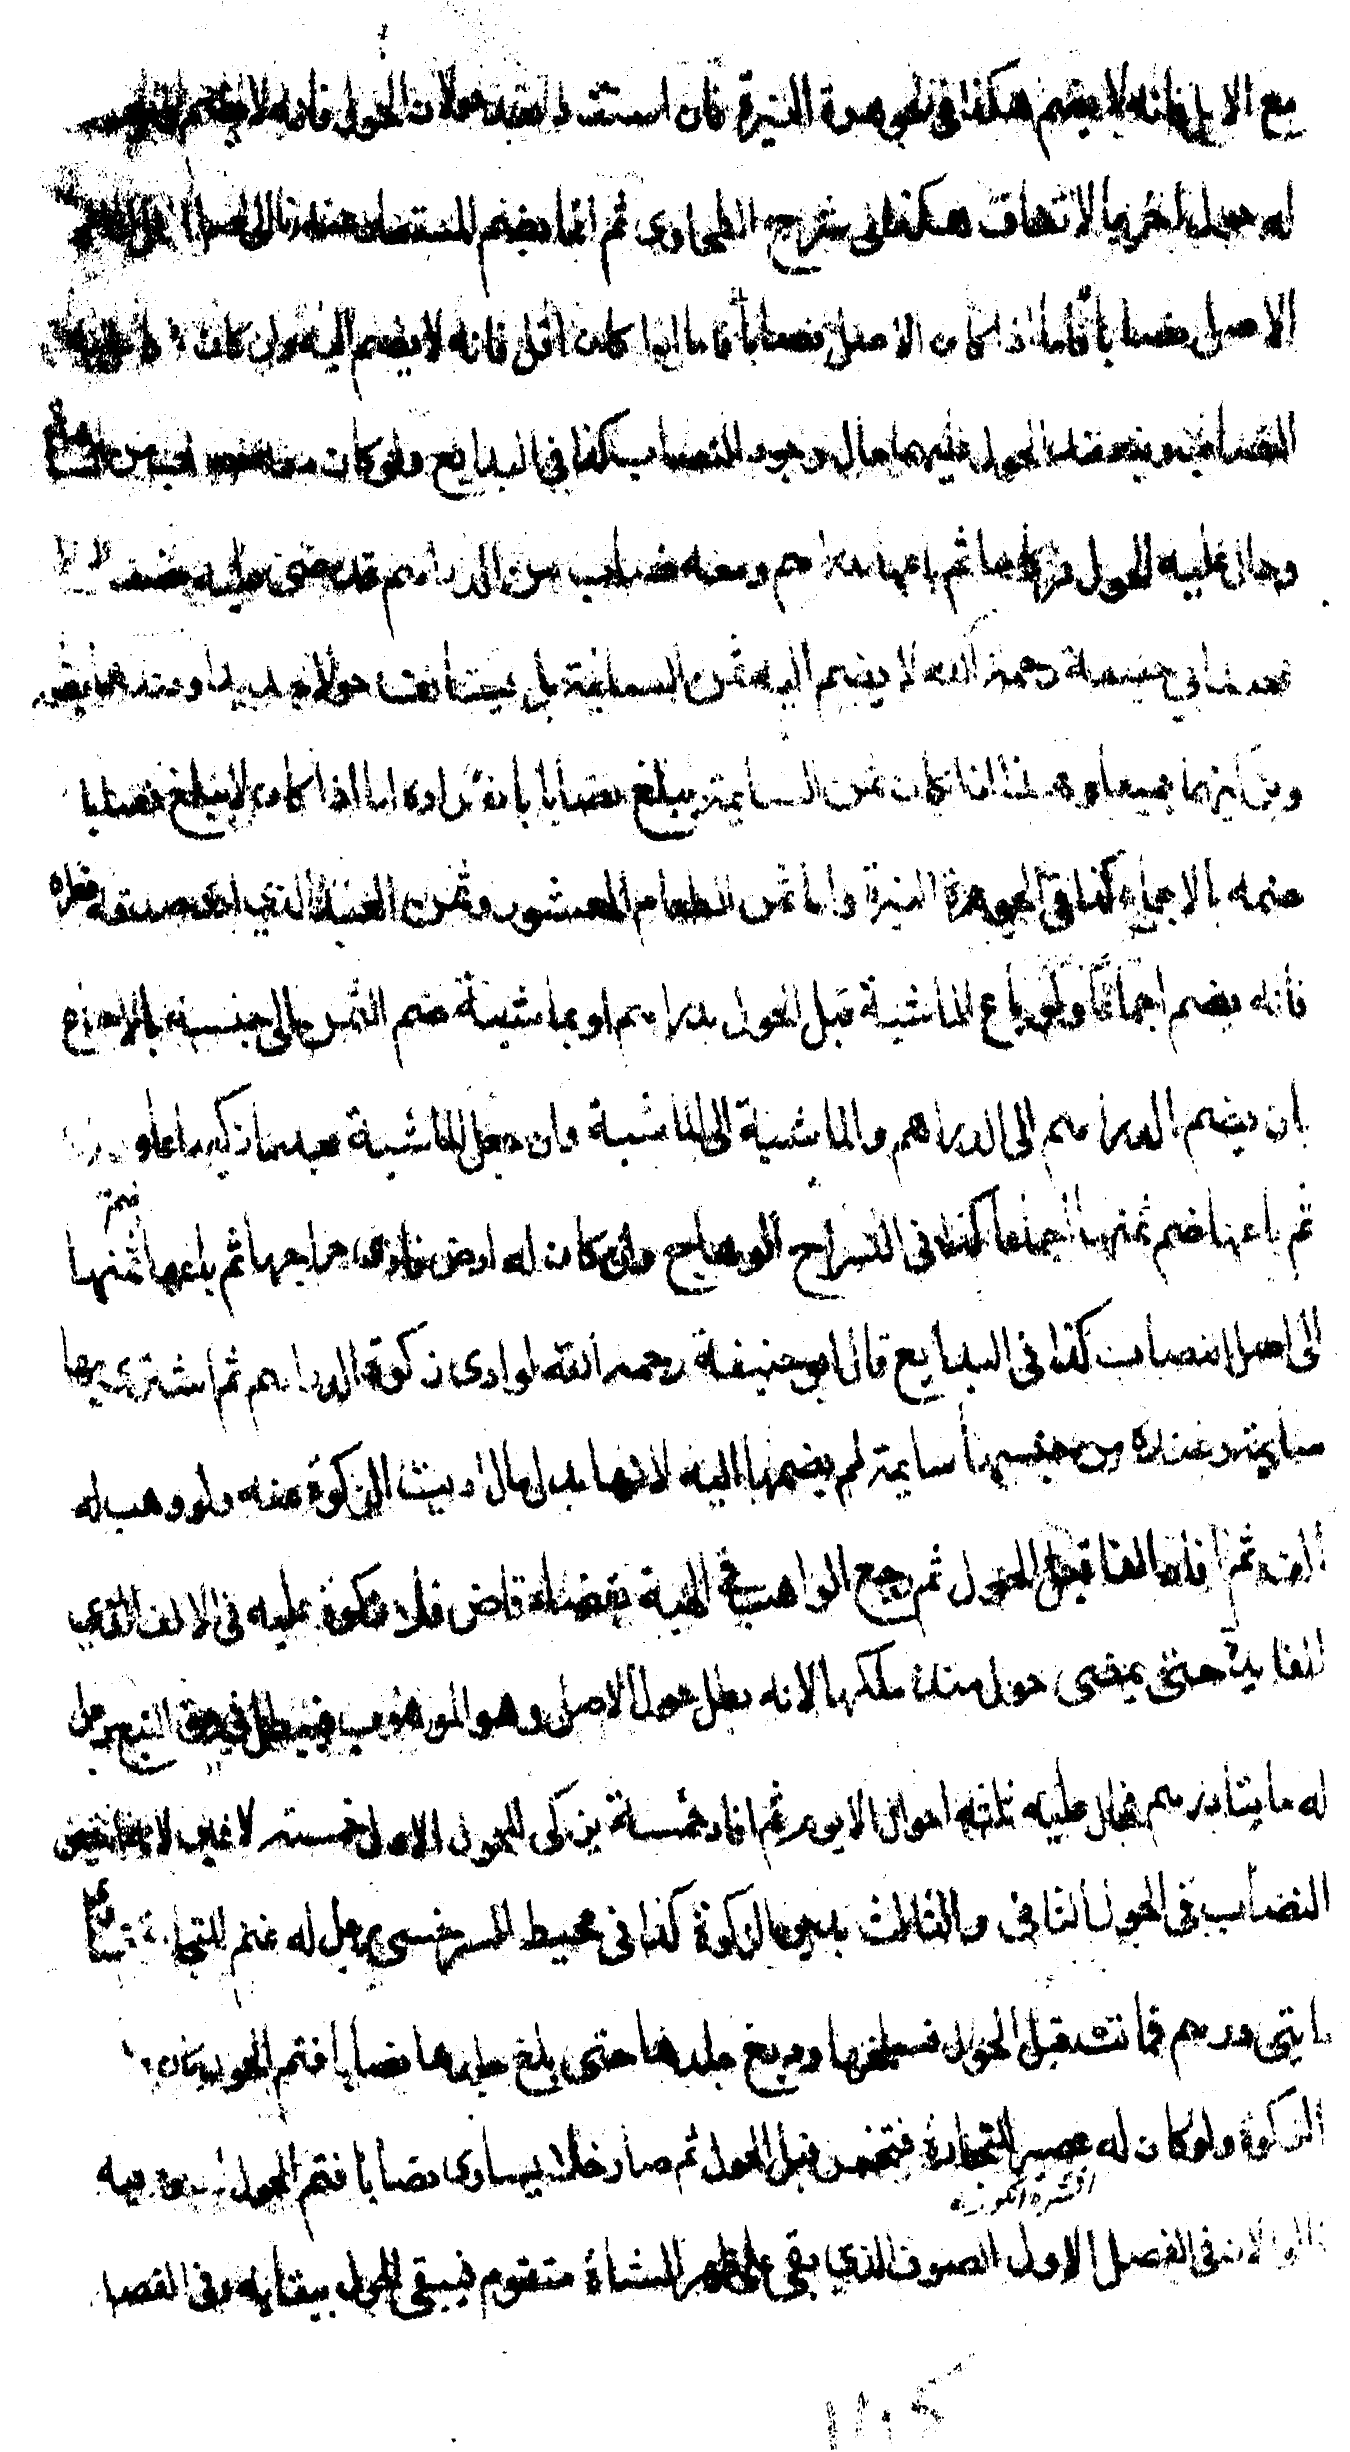 مع الابل فانه لا يضم هكذا في الجوهرة النيرة فان استفاد بعد حولان الحول فانه لا يضم
له حول اخر بالاتفاق هكذا في شرح الطحاوي ثم انما يضم المستفاد عندنا الى اصل
الاصل نصابا فاما اذا كان الاصل نصابا فاما اذا كان اقل فانه لا يضم اليه وان كان
النصاب وينعقد الحول عليهما حال وجود النصاب كذا في البدايع ولو كان معه نصاب من
وحال عليه الحول فزكاها ثم باعها بدراهم ومعه نصاب من الدراهم قد مضى عليه نصف
فعند ابي حنيفة رحمه الله لا يضم اليه ثمن السايمة بل يستانف حولا جديدا وعندهما يضم
ويزكيهما جميعا وهذا اذا كان ثمن السايمة يبلغ نصابا بانفراده اما اذا كان لا يبلغ نصابا
ضمه بالاجماع كذا في الجوهرة النيرة واما ثمن الطعام المعشور وثمن العبد الذي ادى صدقة فطره
فانه يضم اجماعا ولو باع الماشية قبل الحول بدراهم او بماشية ضم الثمن الى جنسه بالاجماع
بان يضم الدراهم الى الدراهم والماشية الى الماشية وان جعل الماشية بعد ما زكيها علوفة
ثم باعها ضم ثمنها اجماعا كذا في السراج الوهاج وان كان له ارض فادى خراجها ثم باعها ضم ثمنها
الى اصل النصاب كذا في البدايع قال ابو حنيفة رحمه الله لو ادى زكوة الدراهم ثم اشترى بها
سايمة وعنده من جنسها سايمة لم يضمها اليه لانها بدل مال اديت الزكوة عنه ولو وهب له
الف ثم افاد الفا قبل الحول ثم رجع الواهب في الهبة بقضاء قاض فلا زكوة عليه في الالف الذي
الفايدة حتى يمضي حول منذ ملكها لانه بطل حول الاصل وهو الموهوب فيبطل في حق التبع رجل
له مايتا درهم فحال عليه ثلثه احوال الا يوم ثم افاد خمسة يزكى للحول الاول خمسة لا غير لانه انتقص
النصاب في الحول الثاني والثالث بدين الزكوة كذا في محيط السرخسي رجل له غنم للتجارة تساوي
مايتى درهم فماتت قبل الحول فسلخها ودبغ جلدها حتى بلغ جلدها نصابا فتم الحول كان
الزكوة ولو كان له عصير للتجارة فتخمر قبل الحول ثم صار خلا يساوى نصابا فتم الحول لا زكوة فيه
قالوا لان في الفصل الاول الصوف الذي بقي على ظهر الشاة متقوم فيبقى الحول ببقايه وفي الفصل